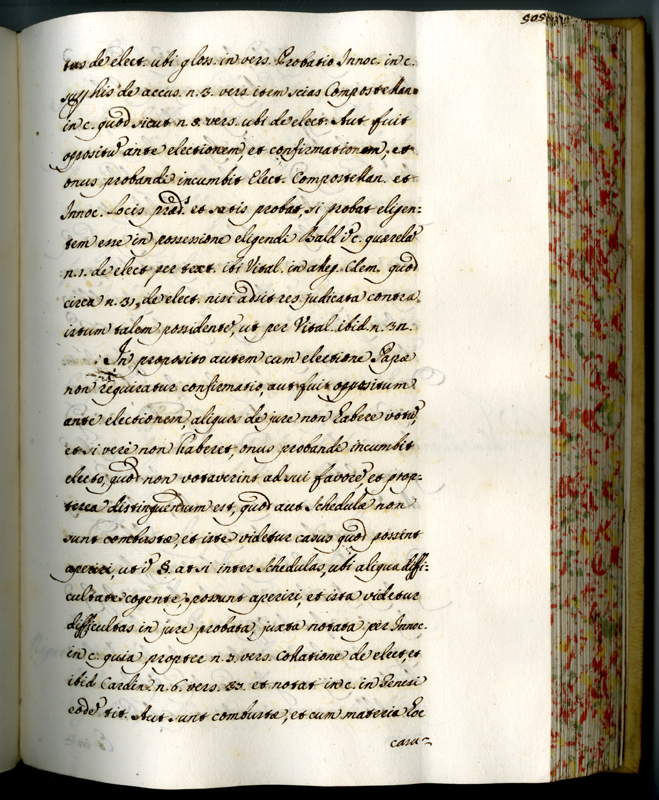 505
tus de elect. ubi gloss. in vers. Probatio Innoc. in c.
super his de accus. n. 3. vers. item scias Compostellan.
in c. quod sicut n. 8. vers. ubi de elect. Aut fuit
oppositũ ante electionem, et confirmationem, et
onus probandi incumbit Elect. Compostellan. et
Innoc. locis præd.s et satis probat, si probat eligen:
tem esse in possessione eligendi Bald. c. querela
n. 1. de elect. per text. ibi Vital. in Clem. quod
circa n. 31. de elect. nisi adsit res judicata contra
istum talem possidentẽ, ut per Vital. ibid. n. 32.
In proposito autem cum electione Papæ
non requiratur confirmatio, aut fuit oppositum
ante electionem, aliquos de jure non habere votũ,
et si vere non haberet, onus probandi incumbit
electo, quod non votaverint ad sui favorẽ, et prop:
terea distinguendum est, quod aut schedulæ non
sunt combustæ, et iste videtur casus quod possint
aperiri, ut §. at si inter schedulas, ubi aliqua diffi:
cultate cogente, possunt aperiri, et ista videtur
difficultas in jure probata, juxta notata per Innoc.
in c. quia propter n. 3. vers. Collatione de elect. et
ibid. Cardin. n. 6. vers. 83. et notat in c. in Genesi
eodẽ tit. Aut sunt combustæ, et cum materia hoc
casu